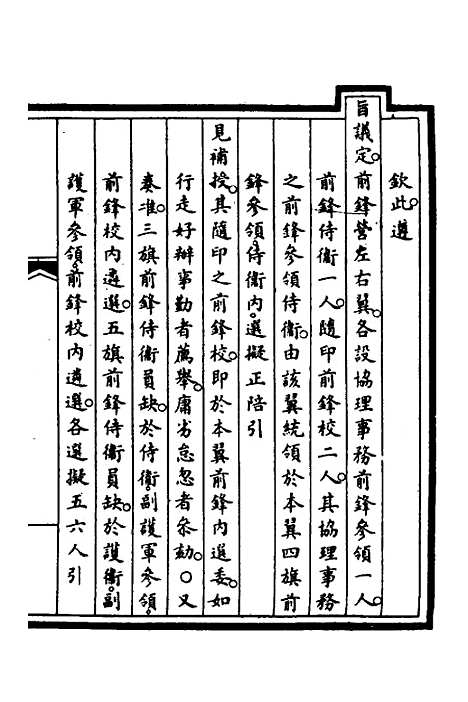 欽此遵
旨議定。前鋒營左右翼。各設協理事務前鋒參領一人。
前鋒侍衞一人。隨印前鋒校二人。其協理事務
之前鋒參領侍衞。由該翼統領於本翼四旗前
鋒參領。侍衞內。選擬正陪引
見補授。其隨印之前鋒校。即於本翼前鋒內選委。如
行走好辦事勤者薦舉。庸劣怠忽者叅劾。○又
奏准。三旗前鋒侍衞員缺。於侍衞。副護軍參領。
前鋒校內遴選。五旗前鋒侍衞員缺。於護衞。副
護軍參領。前鋒校內遴選。各選擬五六人引